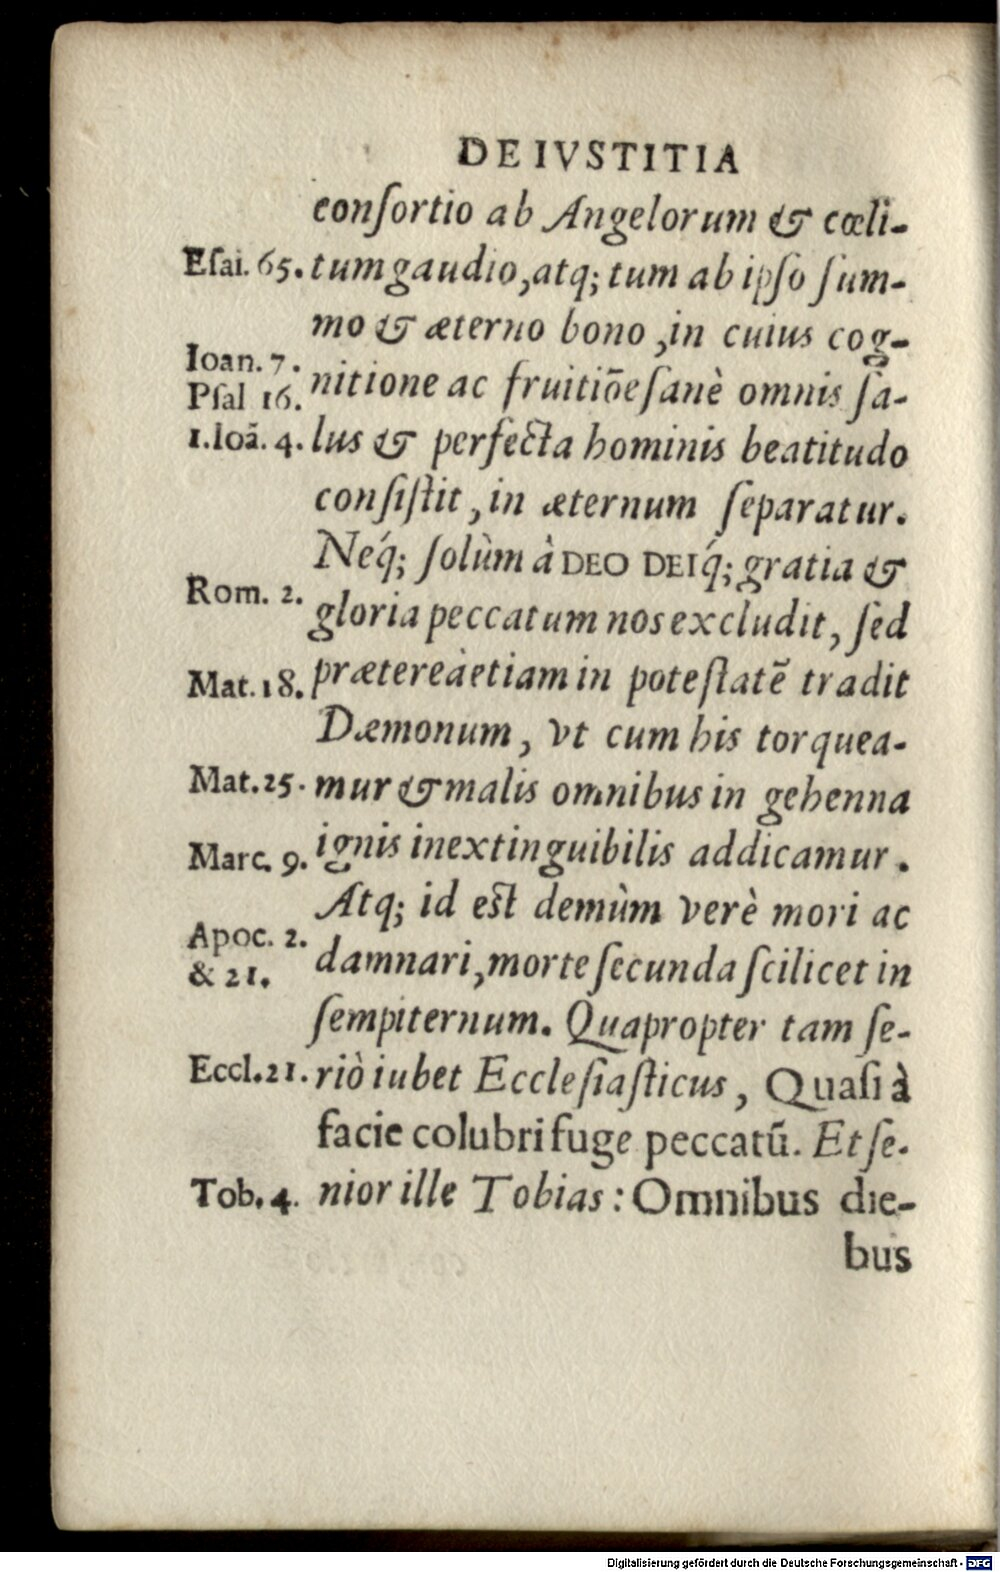 DE IVSTITIA
conſortio ab Angelorum & cœli-
Eſai. 65. tum gaudio, atq; tum ab ipſo ſum-
mo & æterno bono, in cuius cog-
Ioan. 7.
Pſal 16. nitione ac fruitiōe ſanè omnis ſa-
1.Ioā. 4. lus & perfecta hominis beatitudo
conſiſtit, in æternum ſeparatur.
Neq́; ſolùm à DEO DEIq́; gratia &
Rom. 2. gloria peccatum nos excludit, ſed
Mat. 18. prætereà etiam in poteſtatē tradit
Dæmonum, vt cum his torquea-
Mat. 25. mur & malis omnibus in gehenna
Marc. 9. ignis inextinguibilis addicamur.
Atq; id eſt demùm verè mori ac
Apoc. 2.
& 21. damnari, morte ſecunda ſcilicet in
ſempiternum. Quapropter tam ſe-
Eccl. 21. riò iubet Eccleſiaſticus, Quaſi à
facie colubri fuge peccatū. Et ſe-
Tob. 4. nior ille Tobias: Omnibus die-
bus
Digitalisierung gefördert durch die Deutsche Forschungsgemeinschaft - DFG